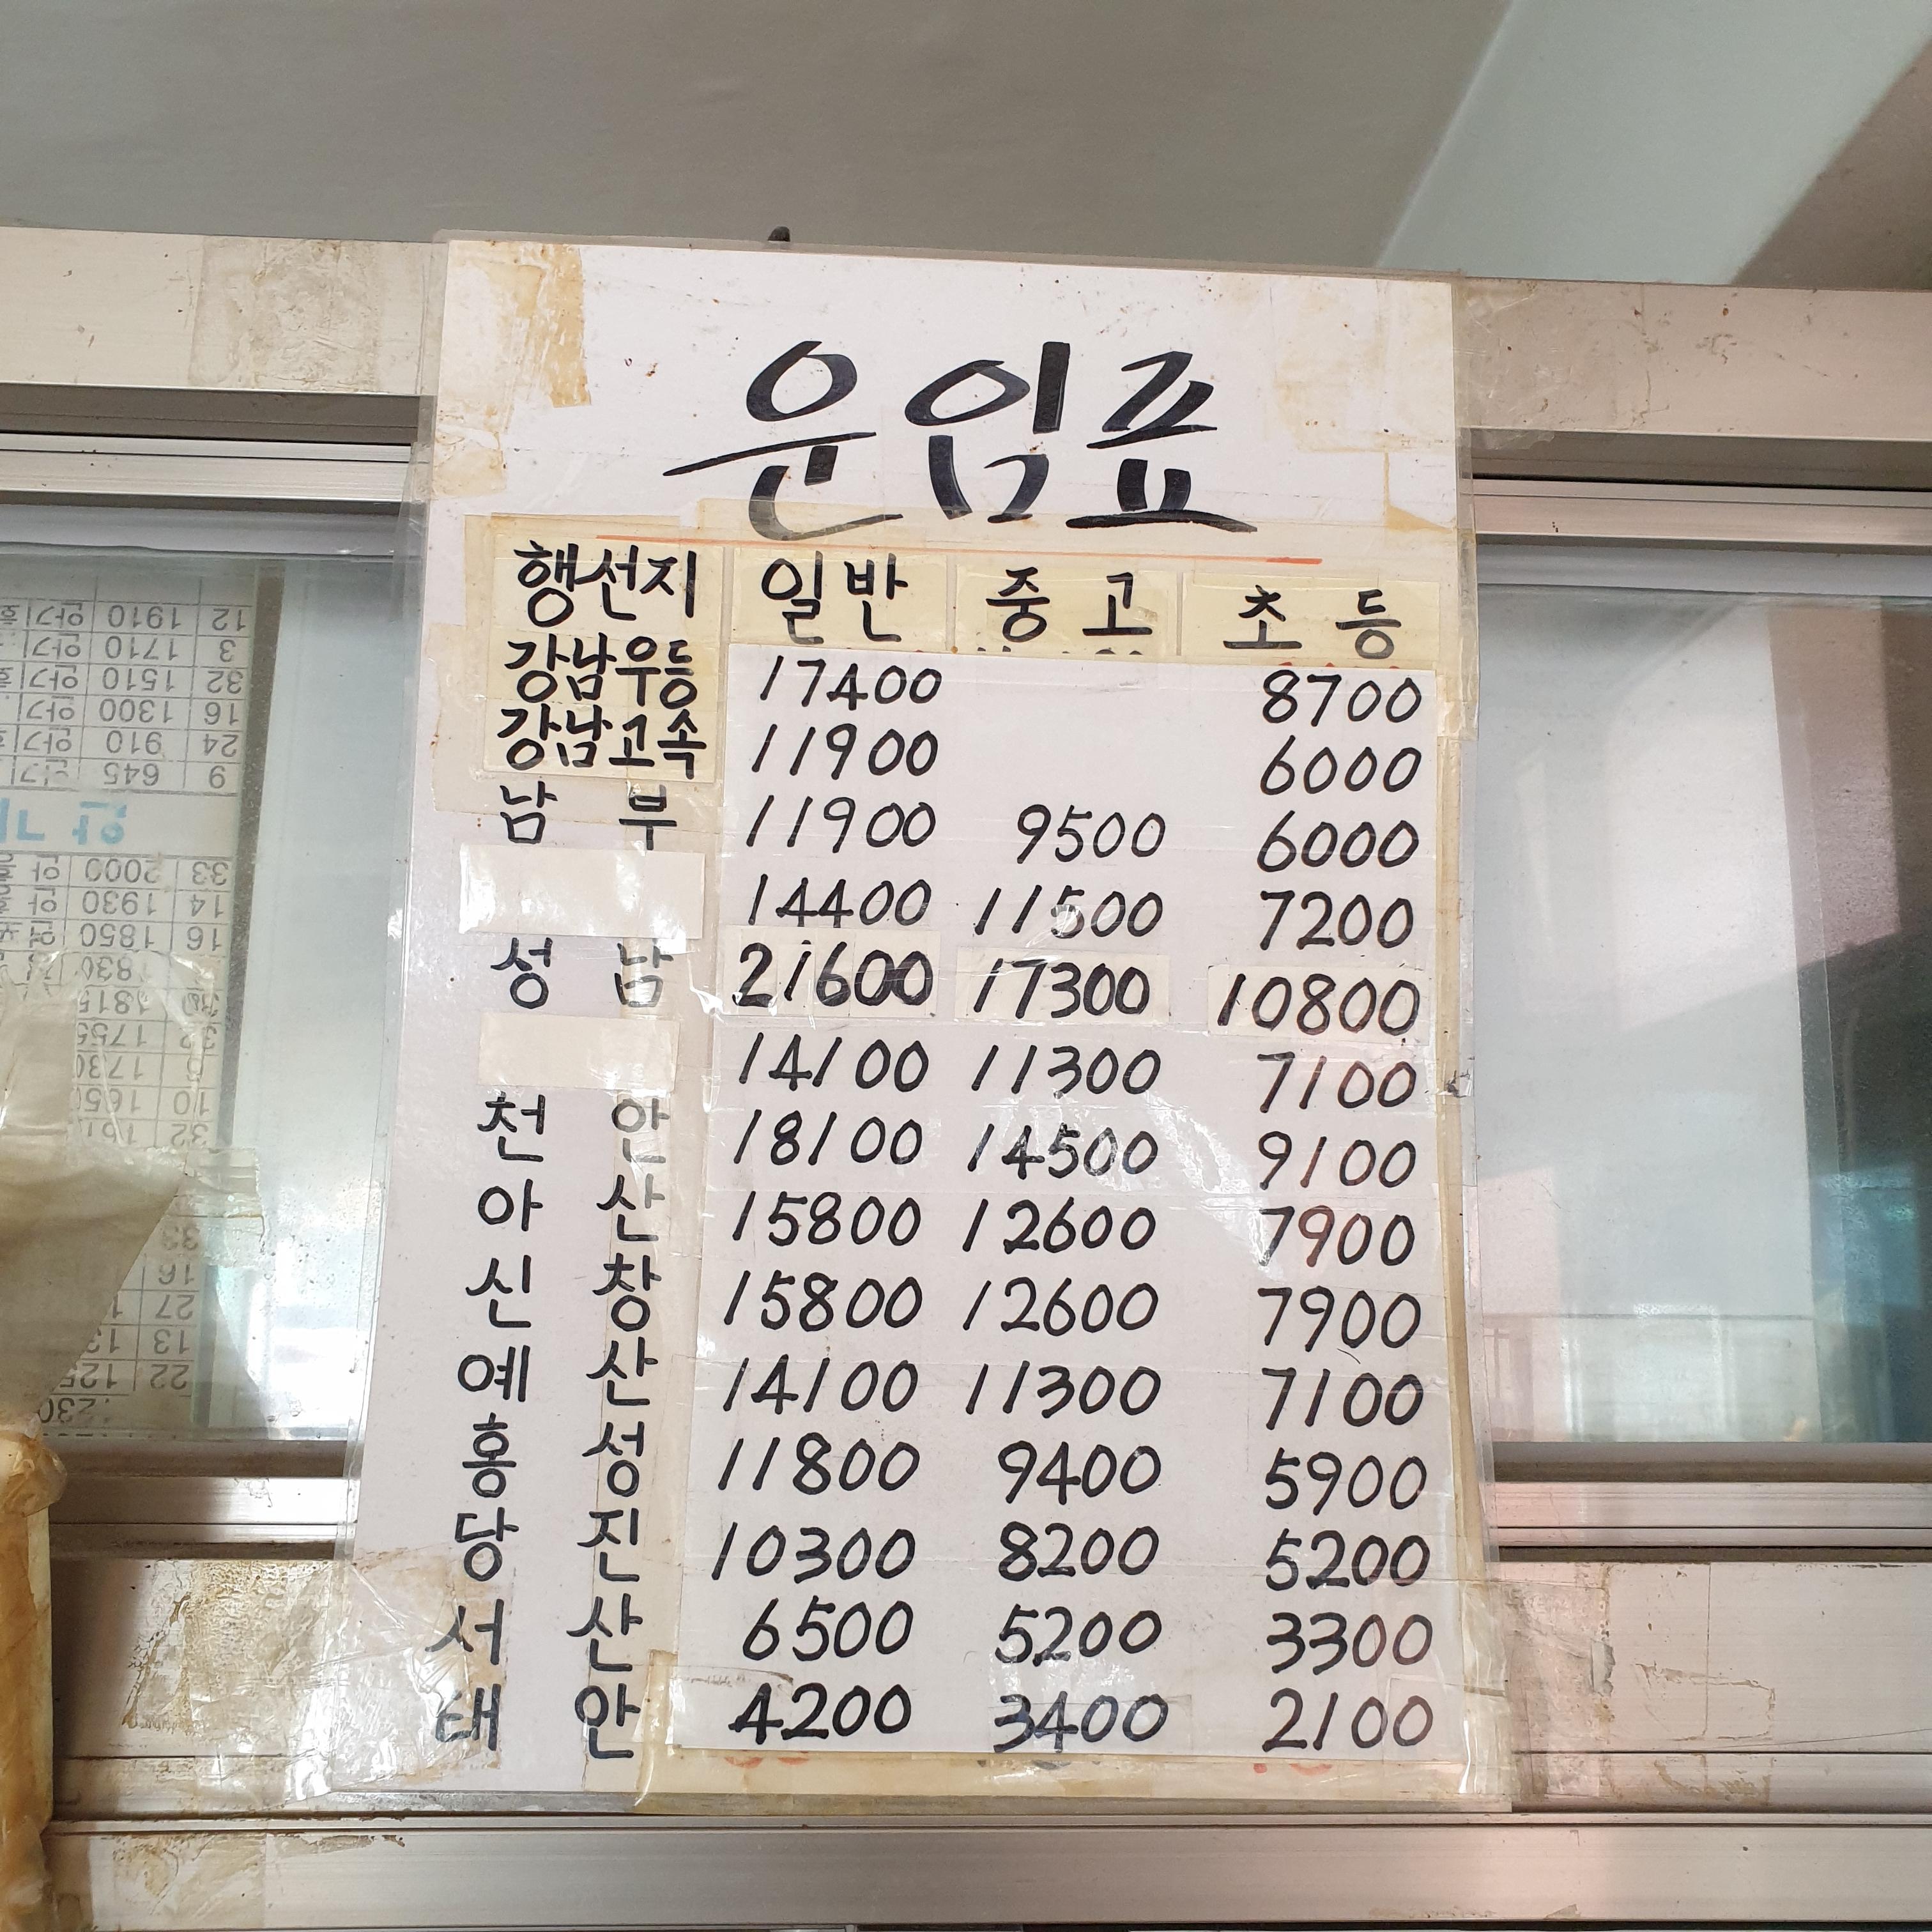 운임표
행선지 일반 중고 초등
강남우등 17400 8700
강남고속 11900 6000
남부 11900 9500 6000
14400 11500 7200
성남 21600 17300 10800
14100 11300 7100
천안 18100 14500 9100
아산 15800 12600 7900
신창 15800 12600 7900
예산 14100 11300 7100
홍성 11800 9400 5900
당진 10300 8200 5200
서산 6500 5200 3300
태안 4200 3400 2100